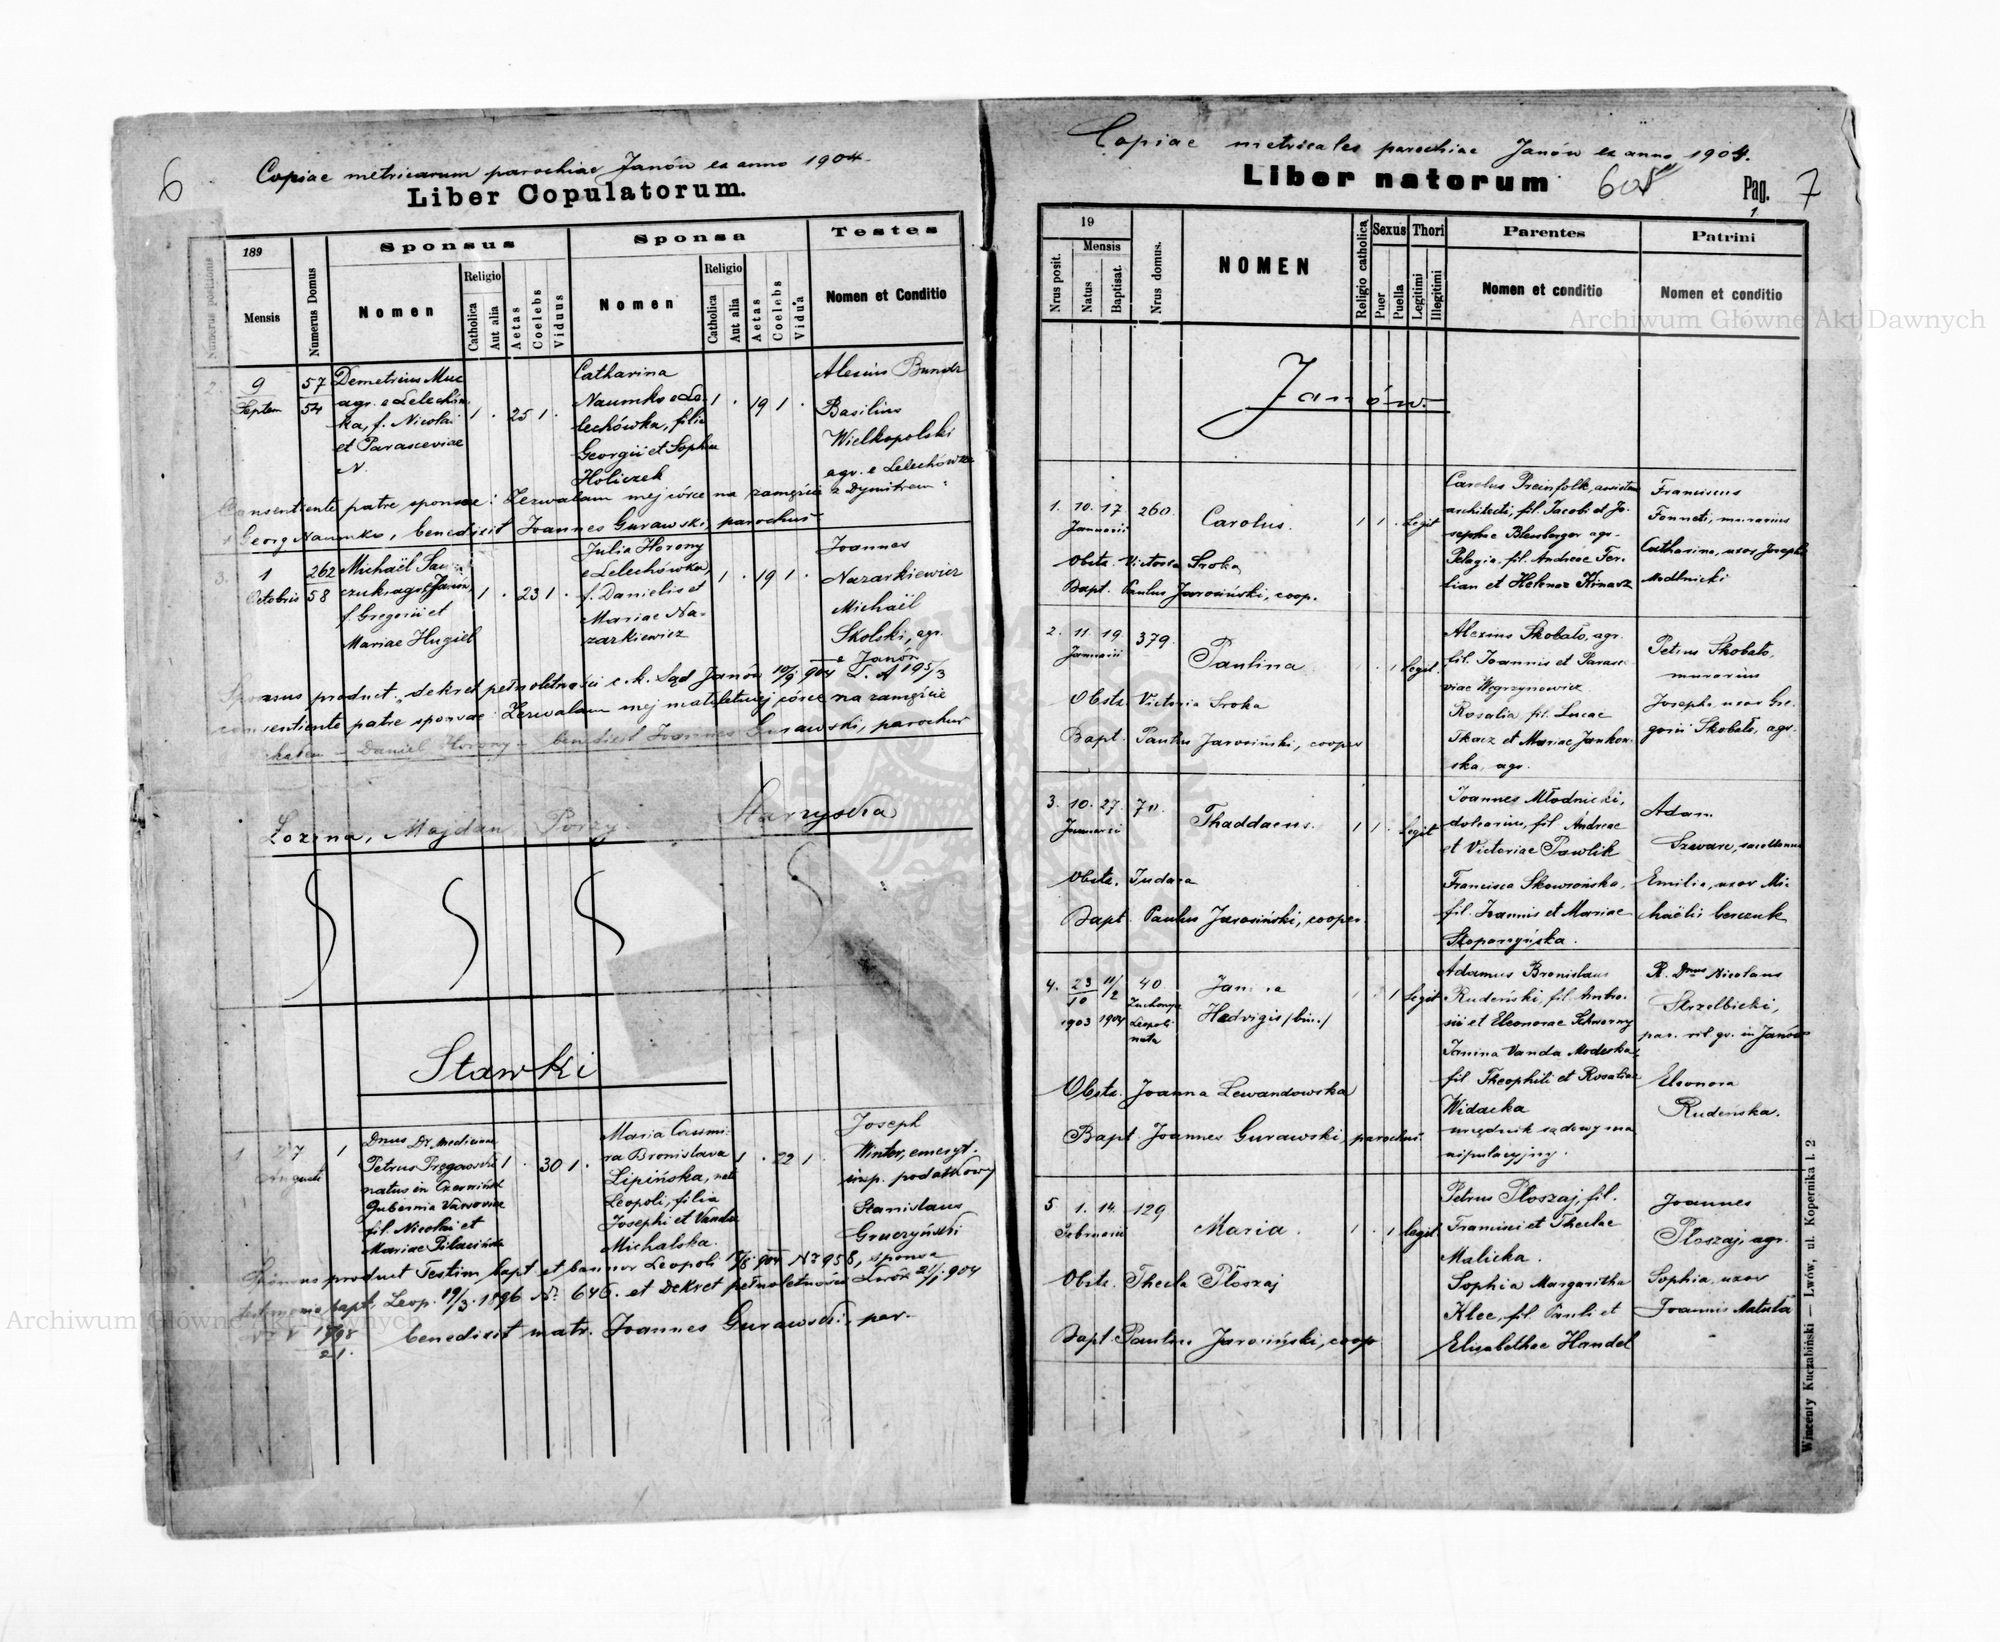 6
Copiae metricarum parochiae Janów ex anno 1904.
Liber Copulatorum.
Numerus positionis
189
Mensis
Numerus Domus
Sponsus
Nomen
Religio
Catholica
Aut alia
Aetas
Coelebs
Viduus
Sponsa
Nomen
Religio
Catholica
Aut alia
Aetas
Coelebs
Vidua
Testes
Nomen et Conditio
2
9
Septem
57
54
Demetrius Muc
agr. e Lelechów-
ka, f. Nicolai
et Parasceviae
N.
1 . 25 1 .
Catharina
Naumko e Le-
lechówka, filia
Georgii et Sophiae
Holiczek
1 . 19 1 .
Alexius
Basilius
Wielkopolski
agr. e Lelechówka
Consentiente patre sponsae: Zezwalam mej córce na zamęście z Dymitrem
Georg Naumko, benedixit Joannes Gurawski, parochus
3.
1
Octobris
262
58
Michaël
f. Gregorii et
Mariae Hugiel
1 . 23 1 .
Julia Horony
e Lelechówka,
f. Danielis et
Mariae Na-
zarkiewicz
1 . 19 1 .
Joannes
Nazarkiewicz
Michaël
Skolski, agr.
e Janów
Sponsus product. dekret pełnoletności c. k. Sąd Janów 10/9 904 L. A 195/3
consentiente patre sponsae: Zezwalam mej małoletniej córce na zamęście
Daniel Horony - benedixit Joannes Gurawski, parochus
Łozina, Majdan, Starzyska
Stawki
1
27
Augusti
1
Dnus Dr. Medicinae
Petrus
natus in
Gubernia Varsoviae
fil. Nicolai et
Mariae
1 . 30 1 .
Maria Casimi-
ra Bronislava
Lipińska, nata
Leopoli, filia
Josephi et Vandae
Michalska.
1 . 22 1 .
Joseph
Winter, emeryt.
insp. podatkowy
Stanislaus
Gruczyński
product Testim. bapt. et bannor Leopoli 904 No 958, sponsa
bapt. Leop. 19/3. 1896 No. 646. et dekret pełnoletności Lwów 21/1 904
benedixit matr. Joannes Gurawski, par.
Copiae metricales parochiae Janów ex anno 1904.
Liber natorum
605
Pag.
1
7
19
Nrus posit.
Mensis
Natus
Baptisat.
Nrus domus.
NOMEN
Religio catholica
Sexus
Puer
Puella
Thori
Legitimi
Illegitimi
Parentes
Nomen et conditio
Patrini
Nomen et conditio
Janów.
1. 10. 17. 260.
Januarii
Carolus.
1 1 . Legit
Obstz. Victoria Sroka
Bapt. Paulus Jarosiński, coop.
Carolus Preinfolk, assistens
architecti, fil. Jacobi et Jo-
sephae Blensberger agr.
Pelagia, fil. Andreae Fer-
lian et Helenae
Franciscus
murarius
Catharina, uxor Josephi
Modlnicki
2. 11. 19. 379.
Januarii
Paulina
. 1 legit.
Obstz Victoria Sroka
Bapt. Paulus Jarosiński, cooper
Alexius Skobało, agr.
fil. Joannis et Parasce-
viae Węgrzynowicz
Rosalia, fil. Lucae
Tkacz et Mariae Jankow-
ska, agr.
Petrus Skobało,
murarius
Josepha uxor Gre-
gorii Skobało, agr.
3. 10. 27. 70.
Januarii
Thaddaeus.
1 1 . legit
Obstz. Judasa
Bapt. Paulus Jarosiński, cooper.
Joannes Młodnicki,
doliarius, fil. Andreae
et Victoriae Pawlik
Francisca Skowrońska,
fil. Joannis et Mariae
Adam
Szware,
Emilia, uxor Mi-
chaëlis
4. 23/10 11/2 40
1903 1904 Leopoli
nata
Janina
Hedvigis /bin./
. 1 legit
Obstz. Joanna Lewandowska
Bapt Joannes Gurawski, parochus.
Adamus Bronislaus
Rudeński, fil. Ambro-
sii et Eleonorae
Janina Vanda
fil Theophili et Rosaliae
Widacka
urzędnik sądowy ma
nipulacyjny.
R. Dnus Nicolaus
Strzelbicki,
par. rit. gr. in Janów
Eleonora
Rudeńska.
5 1. 14. 129
Februarii
Maria.
1 . 1 legit.
Obstz. Thecla Płoszaj
Bapt. Paulus Jarosiński, coop
Petrus Płoszaj, fil.
et Theclae
Malicka.
Sophia Margaritha
Klee, fil. Pauli et
Elisabethae Handel
Joannes
Płoszaj, agr.
Sophia, uxor
Joannis Matuła
Wincenty Kuczabiński — Lwów, ul. Kopernika l. 2
Archiwum Główne Akt Dawnych
Archiwum Główne Akt Dawnych